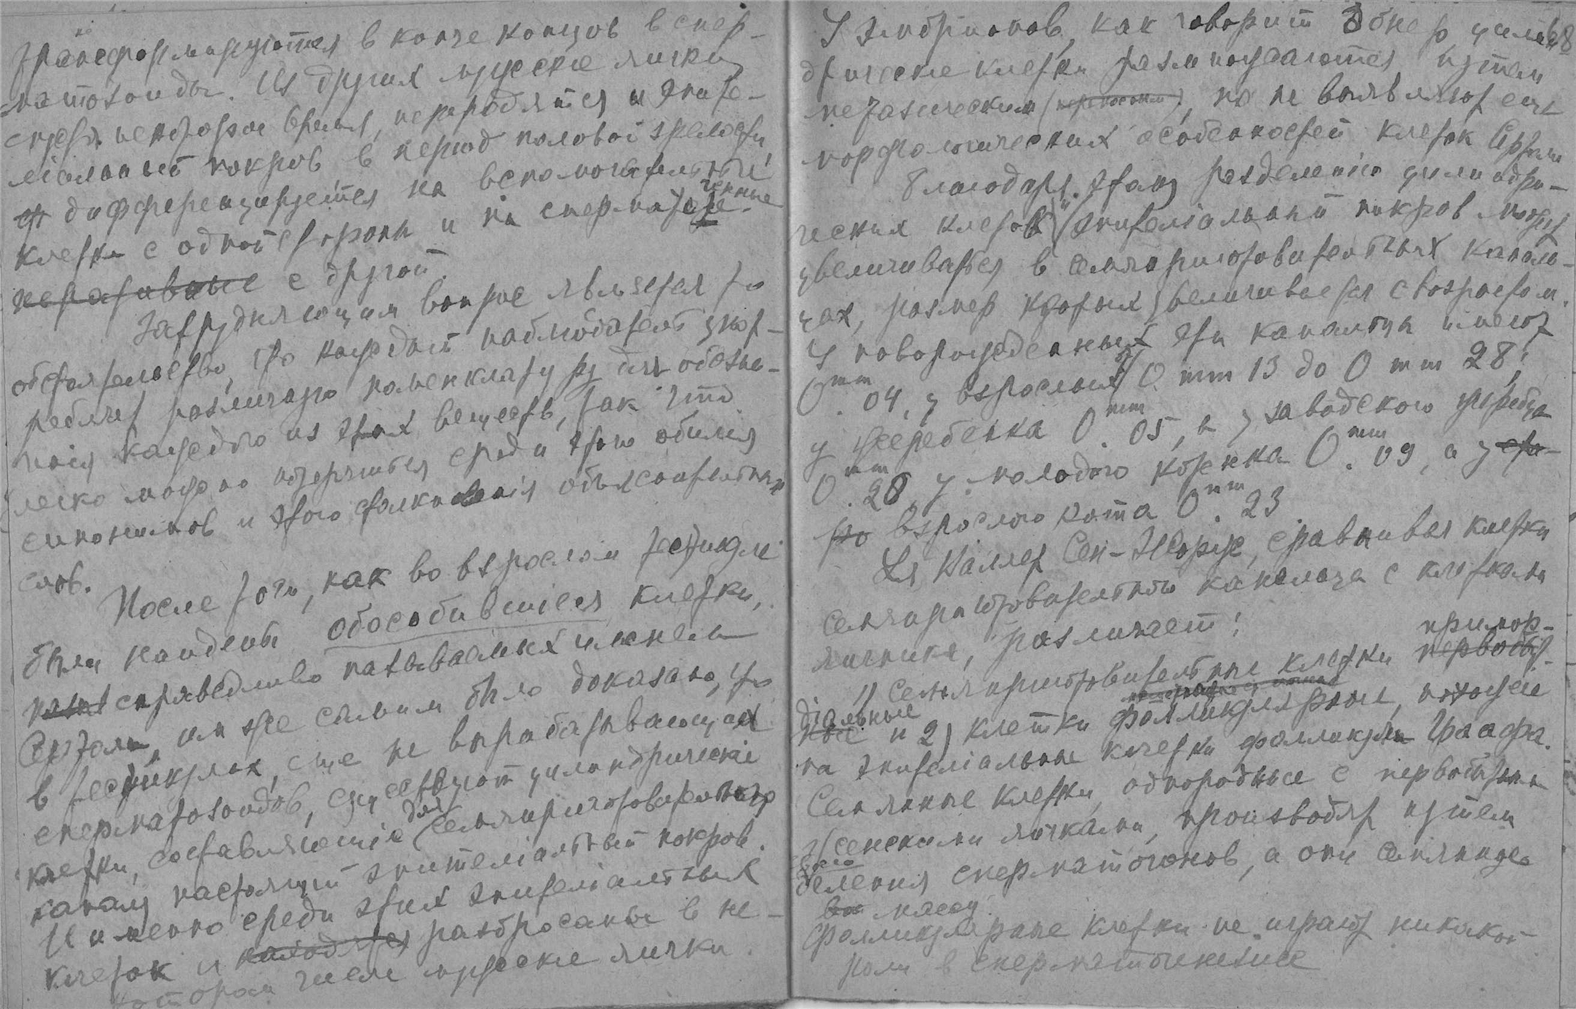 трансформируются в конце концов в спер-
матозоиды. Из других мужские яички
спустя некоторое время, переродятся и эпите-
лиальный покров в период половой зрелости
дифференцируется на вспомогательные
клетки с одной стороны и на сперматогенные
с другой.
Затрудняющим вопрос является то
обстоятельство, что каждый наблюдатель упот-
ребляет различную номенклатуру для обозна-
чения каждого из этих веществ, так что
легко можно потеряться среди этого обилия
синонимов и этого столкновения объяснительных
слов.
После того, как во взрослом тестикуле
были найдены обособившиеся клетки,
справедливо называемых именем
Сертоли, им же самим было доказано, что
в тестикулах, еще не вырабатывающих
сперматозоидов, существуют цилиндрические
клетки, составляющие для семяприготовительного
канала настоящий эпителиальный покров.
Именно среди этих эпителиальных
клеток и находятся разбросаны в не-
котором числе мужские яички.
У эмбрионов, как говорит Эбнер, цилин-
68
дрические клетки размножаются путем
мегазическим, но не выявляют еще
морфологических особенностей клеток Сертоли
Благодаря этому разделению цилиндри-
ческих клеток эпителиальный покров может
увеличиваться в семяприготовительных каналь-
цах, размер которых увеличивается с возрастом.
У новорожденных эти канальцы имеют
0mm.04, у взрослых 0 mm 13 до 0 mm 28;
у жеребенка 0mm.05, а у заводского жеребца
0mm.28, у молодого котенка 0mm.09, а у
взрослого кота 0mm.23
Ля Валлет Сен-Жорж, сравнивая клетки
семяприготовительного канальца с клетками
яичника, различает:
1) Семяприготовительные клетки примор-
диальные и 2) клетки фолликулярные, похожие
на эпителиальные клетки фолликула Граафа.
Семянные клетки, однородные с первобытными
женскими яичками, производят путем
деления сперматогонов, а они семянную
массу.
Фолликулярные клетки не играют никакой
роли в сперматогенезисе